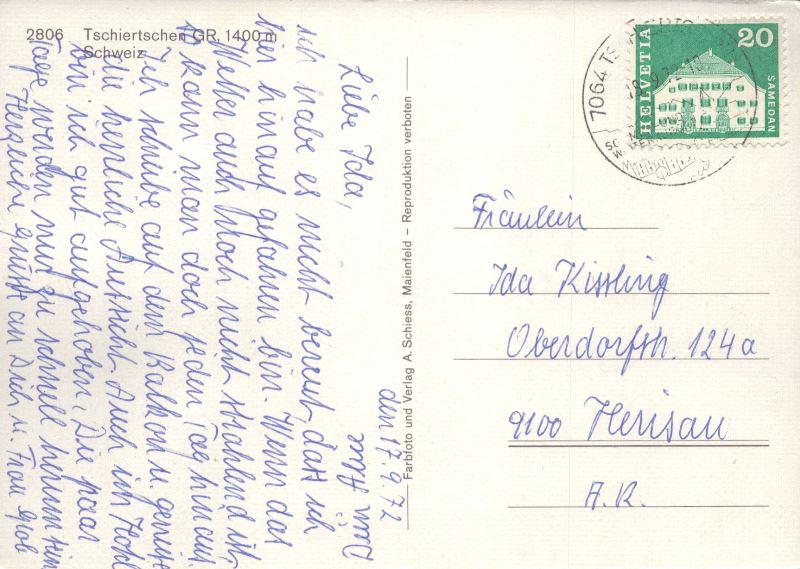 2806 Tschiertschen GR, 1400 m
Schweiz
Liebe Ida,
ich habe es nicht bereut, dass ich
hier hinauf gefahren bin. Wenn das
Wetter auch noch nicht strahlend ist,
so kann man doch jeden Tag hinaus.
Ich schreibe auf dem Balkon u. geniesse
die herrliche Aussicht. Auch im Hotel
bin ich gut aufgehoben. Die paar
Tage werden nur zu schnell herum sein.
Herzliche Grüsse an Dich u. Frau Grob
den 17.9.72
Farbfoto und Verlag A. Schiess, Maienfeld – Reproduktion verboten
7064
HELVETIA
20
SAMEDAN
Fräulein
Ida Kissling
Oberdorfstr. 124a
9100 Herisau
A.R.